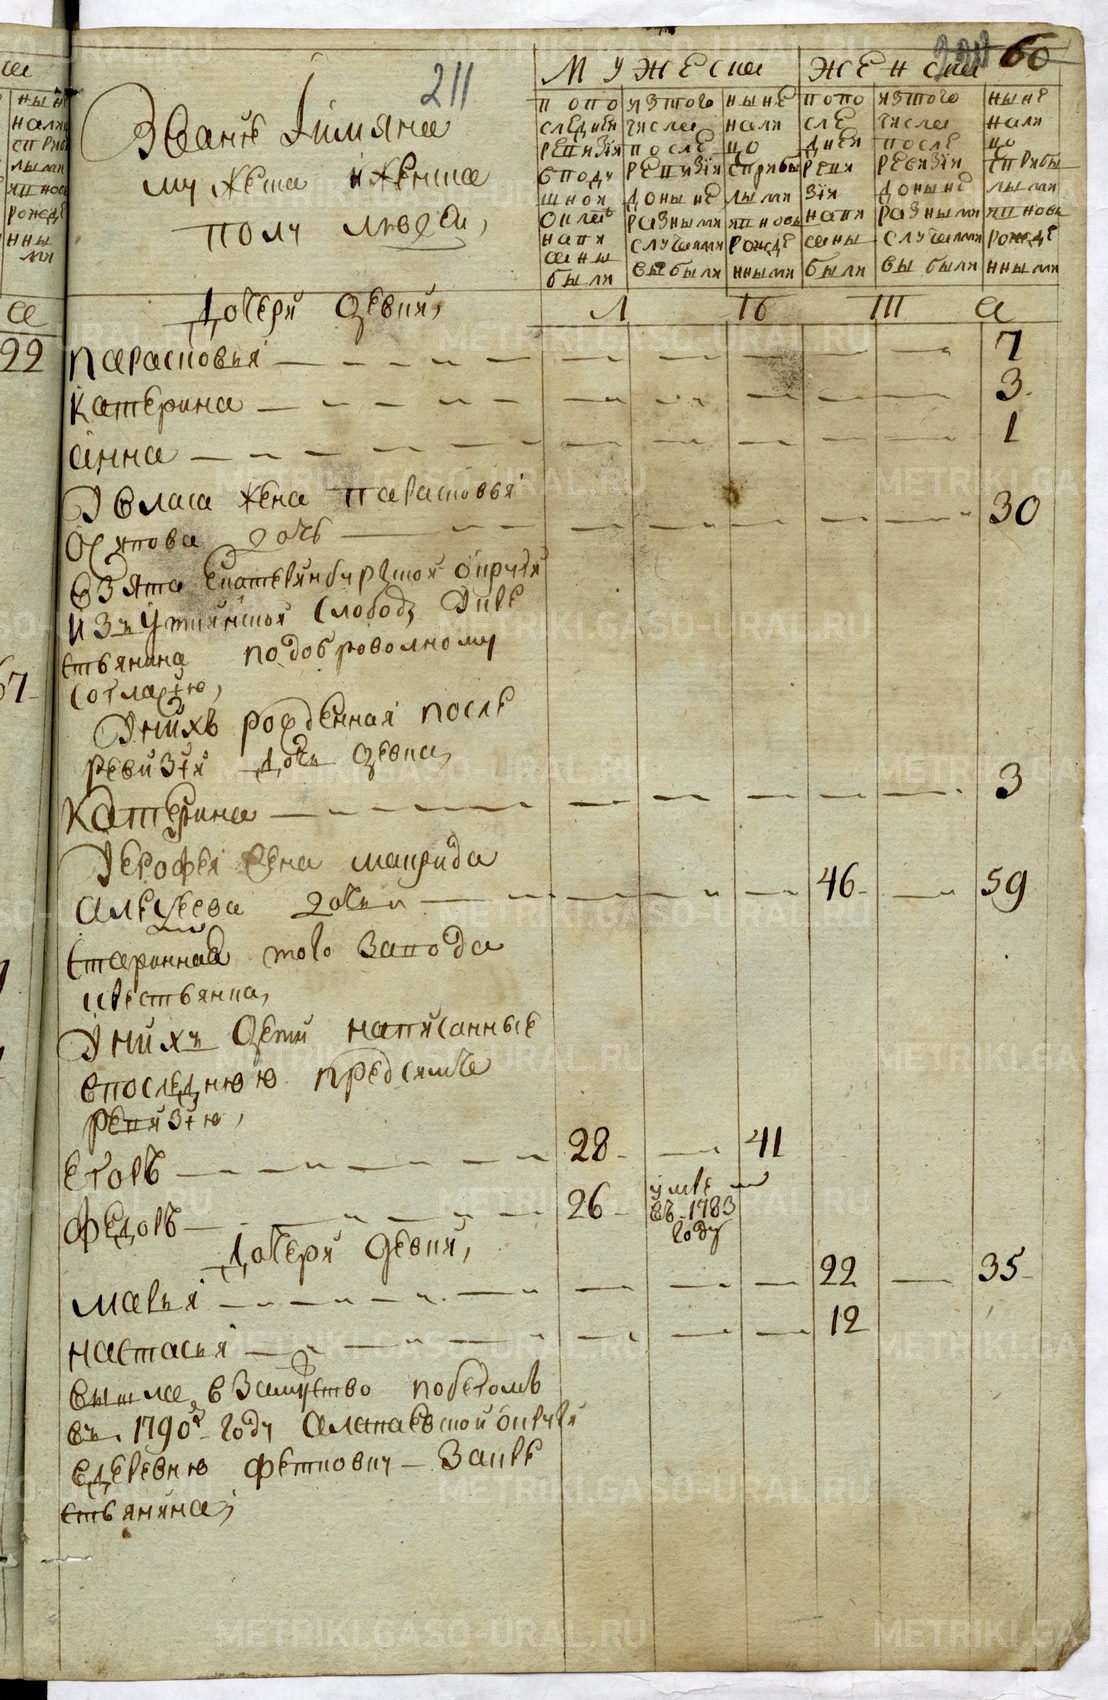 211
60
Званіе Iимяна
мужеска иженска
полу людей,
Мужеска
Женска
попо
следней
ревизіи
вподу
шной
окладъ
напи
саны
были
изтого
числа
после
ревизіи
доныне
разными
случаями
выбыли
ныне
нали
цо
сприбы
лыми
ивновь
рожде
нными
попо
сле
дней
реви
зіи
напи
саны
были
изтого
числа
после
ревизіи
доныне
разными
случаями
выбыли
ныне
нали
цо
сприбы
лыми
ивновь
рожде
нными
Дочери девки,
парасковья 7
катерина 3
анна 1
Увласа жена парасковья
Осипова дочь 30
взята екатеринбургской округи
изъ Уткинской слободы Укре
стьянина подоброволному
согласію,
Унихъ рожденная после
ревизіи дочь девка,
катерина 3
Уерофея жена маврида
алексеева дочь 46 59
старинная того завода
крестьянка,
Унихъ дети написанные
впоследнюю предсимъ
ревизію,
егоръ 28 41
федоръ 26 умре
въ 1783
году
Дочери девки,
марья 22 35
настасья 12
вышла взамуство побегомъ
въ 1790м году алапаевской округи
вдеревню феткову закре
стьянина,
22